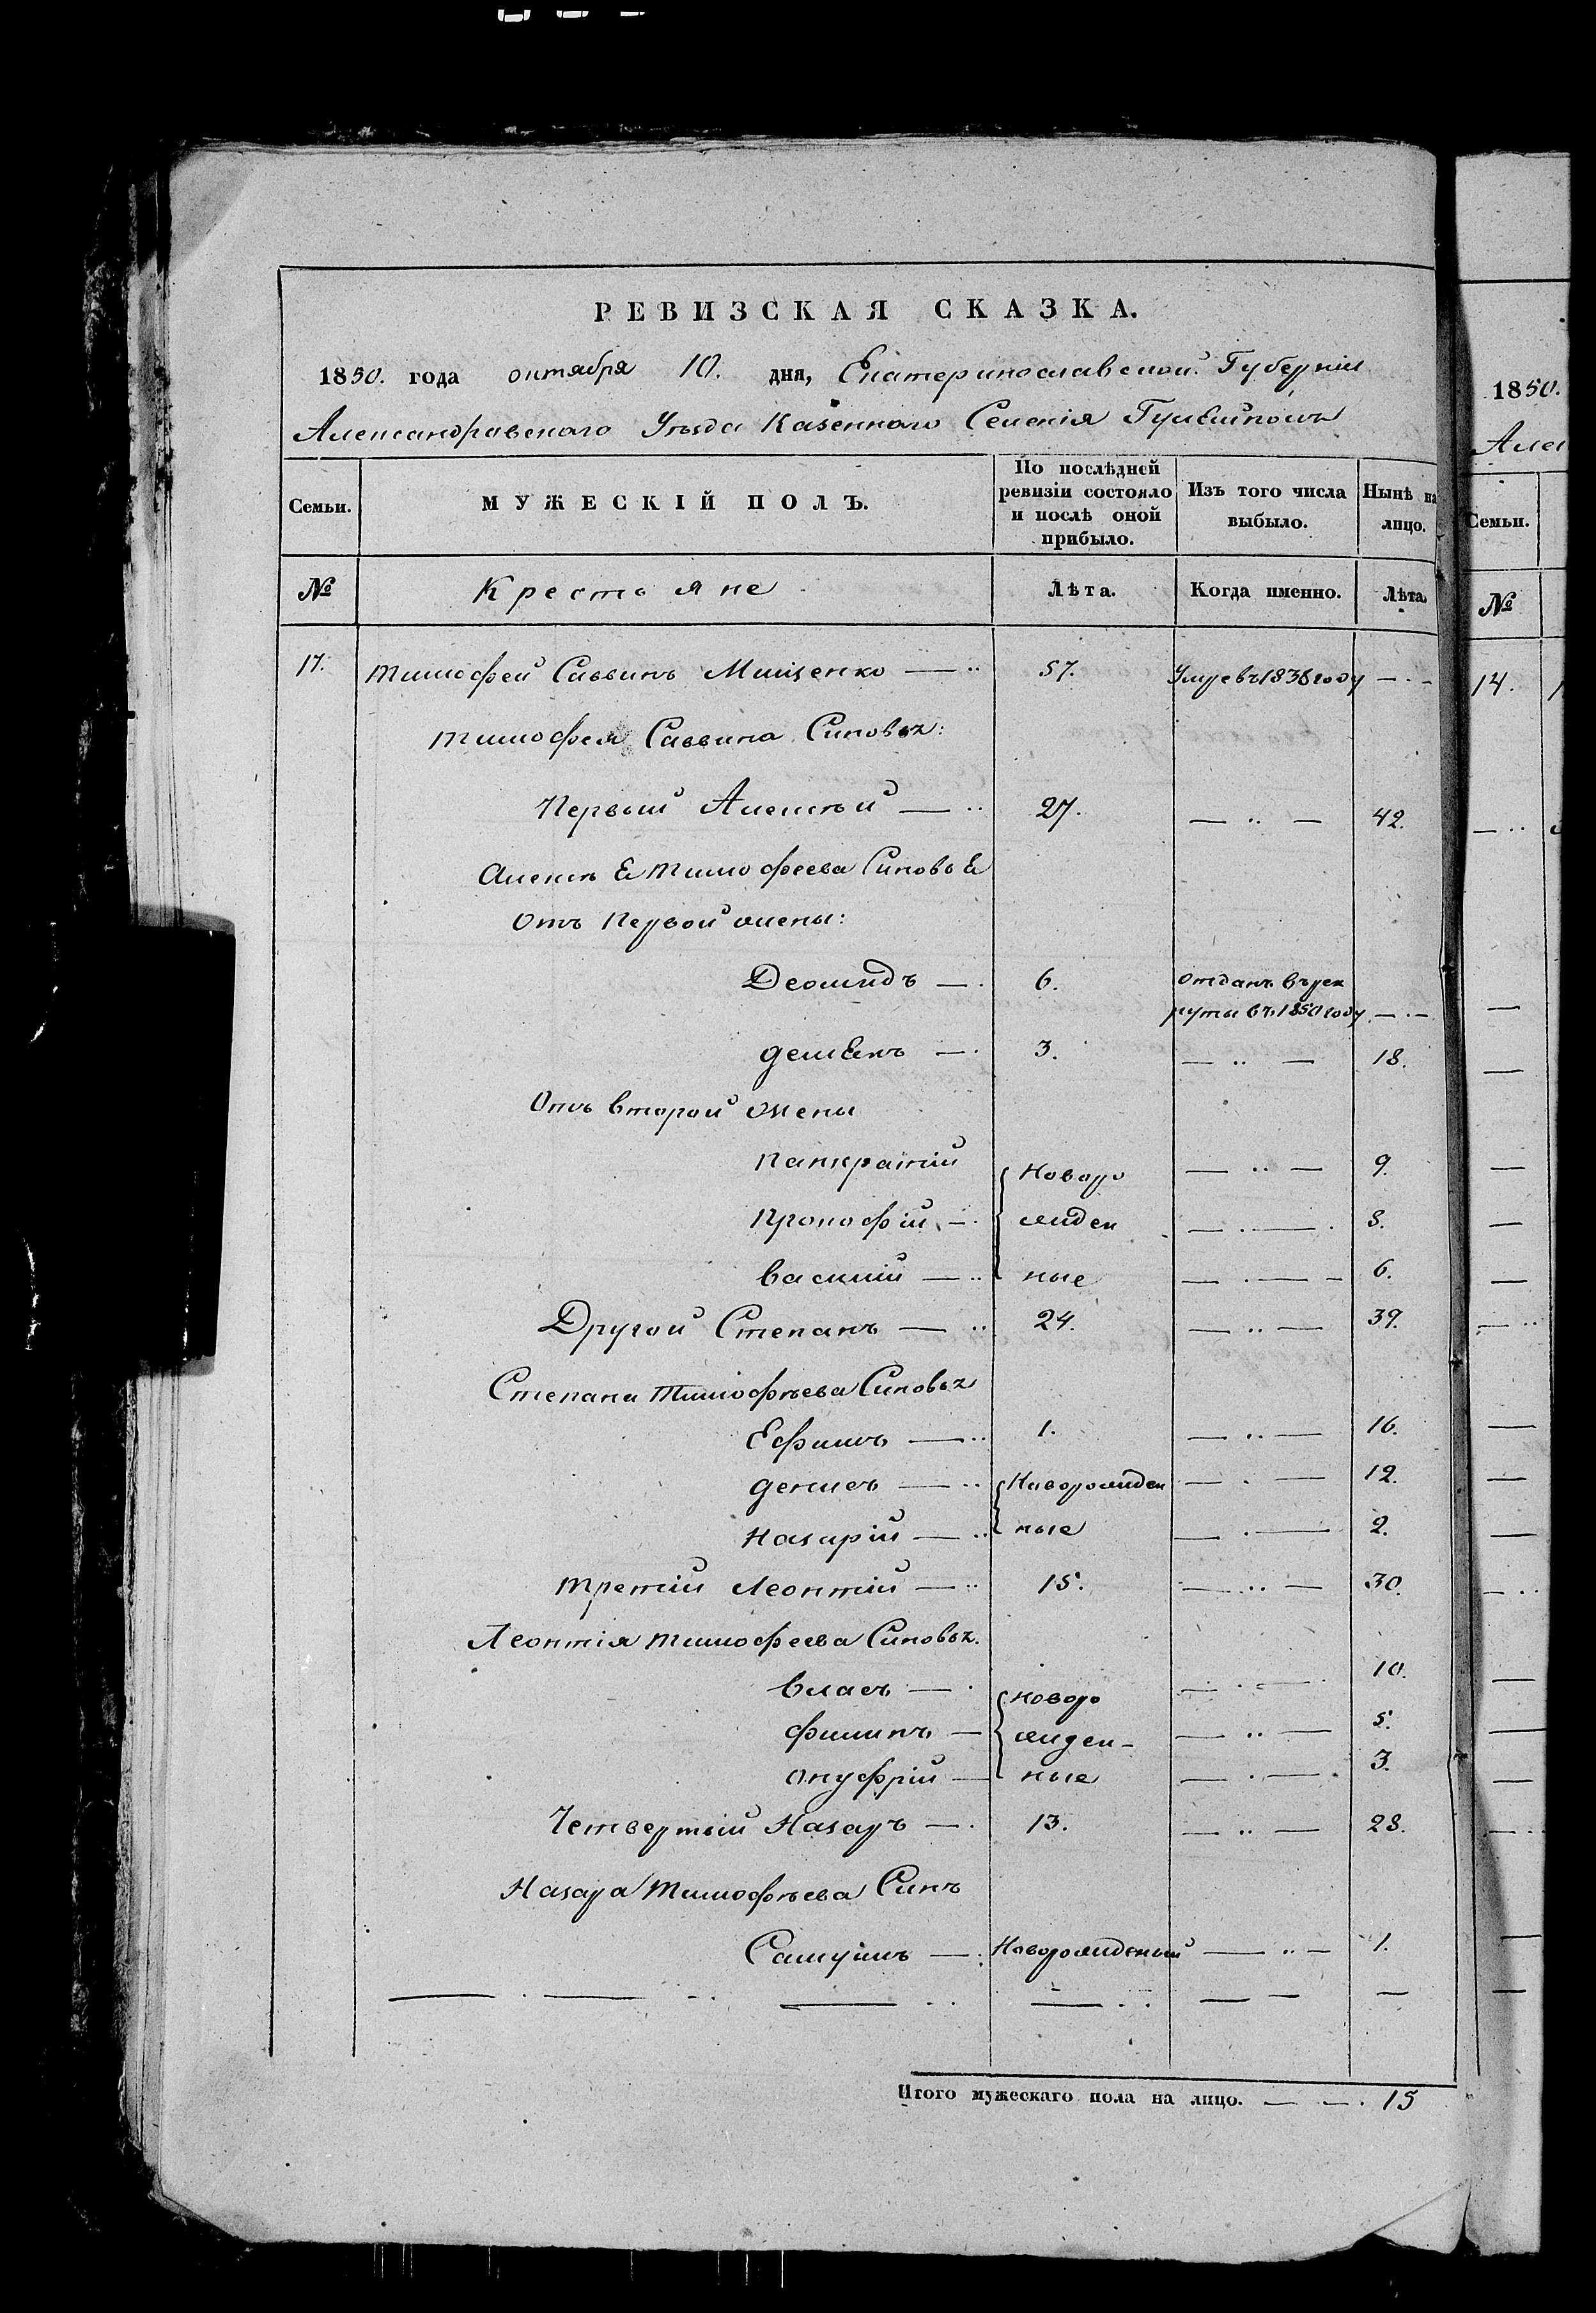 РЕВИЗСКАЯ СКАЗКА.
1850. года октября 10. дня, Екатеринославской Губерніи
Александравскаго Уѣзда Казеннаго Селенія Гуляйполь
Семьи. МУЖЕСКІЙ ПОЛЪ. По послѣдней ревизіи состояло и послѣ оной прибыло. Изъ того числа выбыло. Нынѣ на лицо.
№ Крестьяне Лѣта. Когда именно. Лѣта.
17. Тимофей Саввинъ Мищенко — 57. Умре въ 1838 году — · —
Тимофея Саввина Синовья:
Первый Алексѣй — 27. — ·· — 42.
Алексѣя Тимофеева Синовья
Отъ Первой жены:
Деомидъ — 6. отданъ въ рек
руты въ 1850 году — · —
Демянъ — 3. — ·· — 18.
Отъ второй жены
Панкратій Новоро — ·· — 9.
Прокофій — жден — · — 8.
Василій — ные — · — 6.
Другой Степанъ — 24. — ·· — 39.
Степана Тимофѣева Синовья
Ефимъ — 1. — ·· — 16.
Денисъ — Новорожден — · — 12.
Назарій — ные — · — 2.
Третій Леонтій — 15. — ·· — 30.
Леонтія Тимофеева Синовья.
Власъ — Новоро — · — 10.
Филипъ — жден- — ·· — 5.
Онуфрій — ные — · — 3.
Четвертый Назаръ — 13. — ·· — 28.
Назара Тимофѣева Синъ
Самуилъ — Новорожденый — ·· — 1.
Итого мужескаго пола на лицо. — — 15
1850.
Але
Семьи.
№
14.